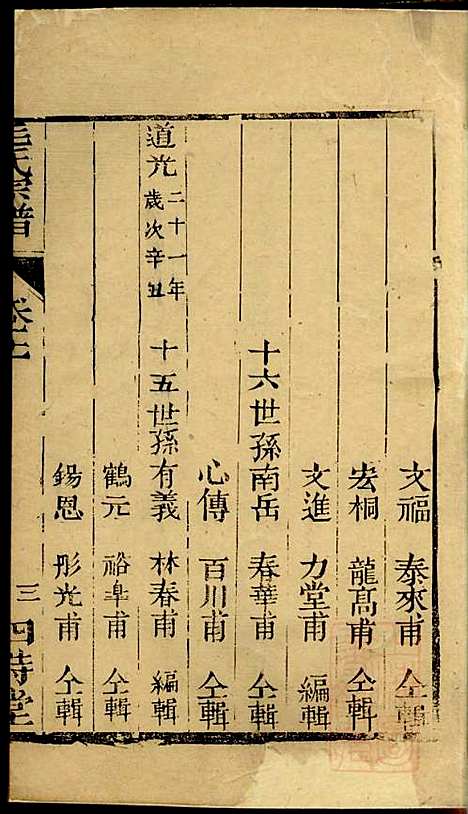 文福 泰來甫 仝輯
宏桐 龍高甫 仝輯
文進 力堂甫 編輯
十六世孫南岳 春華甫 仝輯
心傳 百川甫 仝輯
道光二十一年歲次辛丑 十五世孫有義 林春甫 編輯
鶴元 裕皐甫 仝輯
錫恩 彤光甫 仝輯
毛氏宗譜 卷七 三 四詩堂